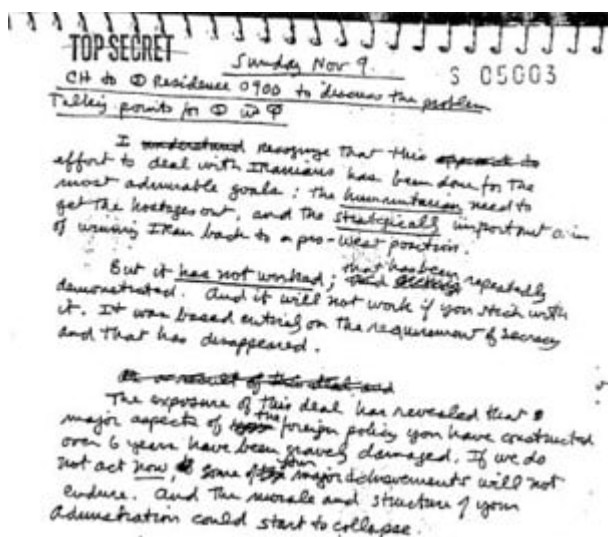 TOP SECRET
Sunday Nov 9.
S 05003
CH to Ⓢ Residence 0900 to discuss the problem
Talking points for Ⓢ w
I understand recognize that this approach to
effort to deal with Iranians has been done for the
most admirable goals; the humanitarian need to
get the hostages out, and the strategically important aim
of winning Iran back to a pro-West position.
But it has not worked; that has been repeatedly
demonstrated. And it will not work if you stick with
it. It was based entirely on the requirement of secrecy
and that has disappeared.
As a result of this deal and
The exposure of this deal has revealed that
major aspects of the foreign policy you have constructed
over 6 years have been gravely damaged. If we do
not act now, some of your major achievements will not
endure. And the morale and structure of your
Administration could start to collapse.